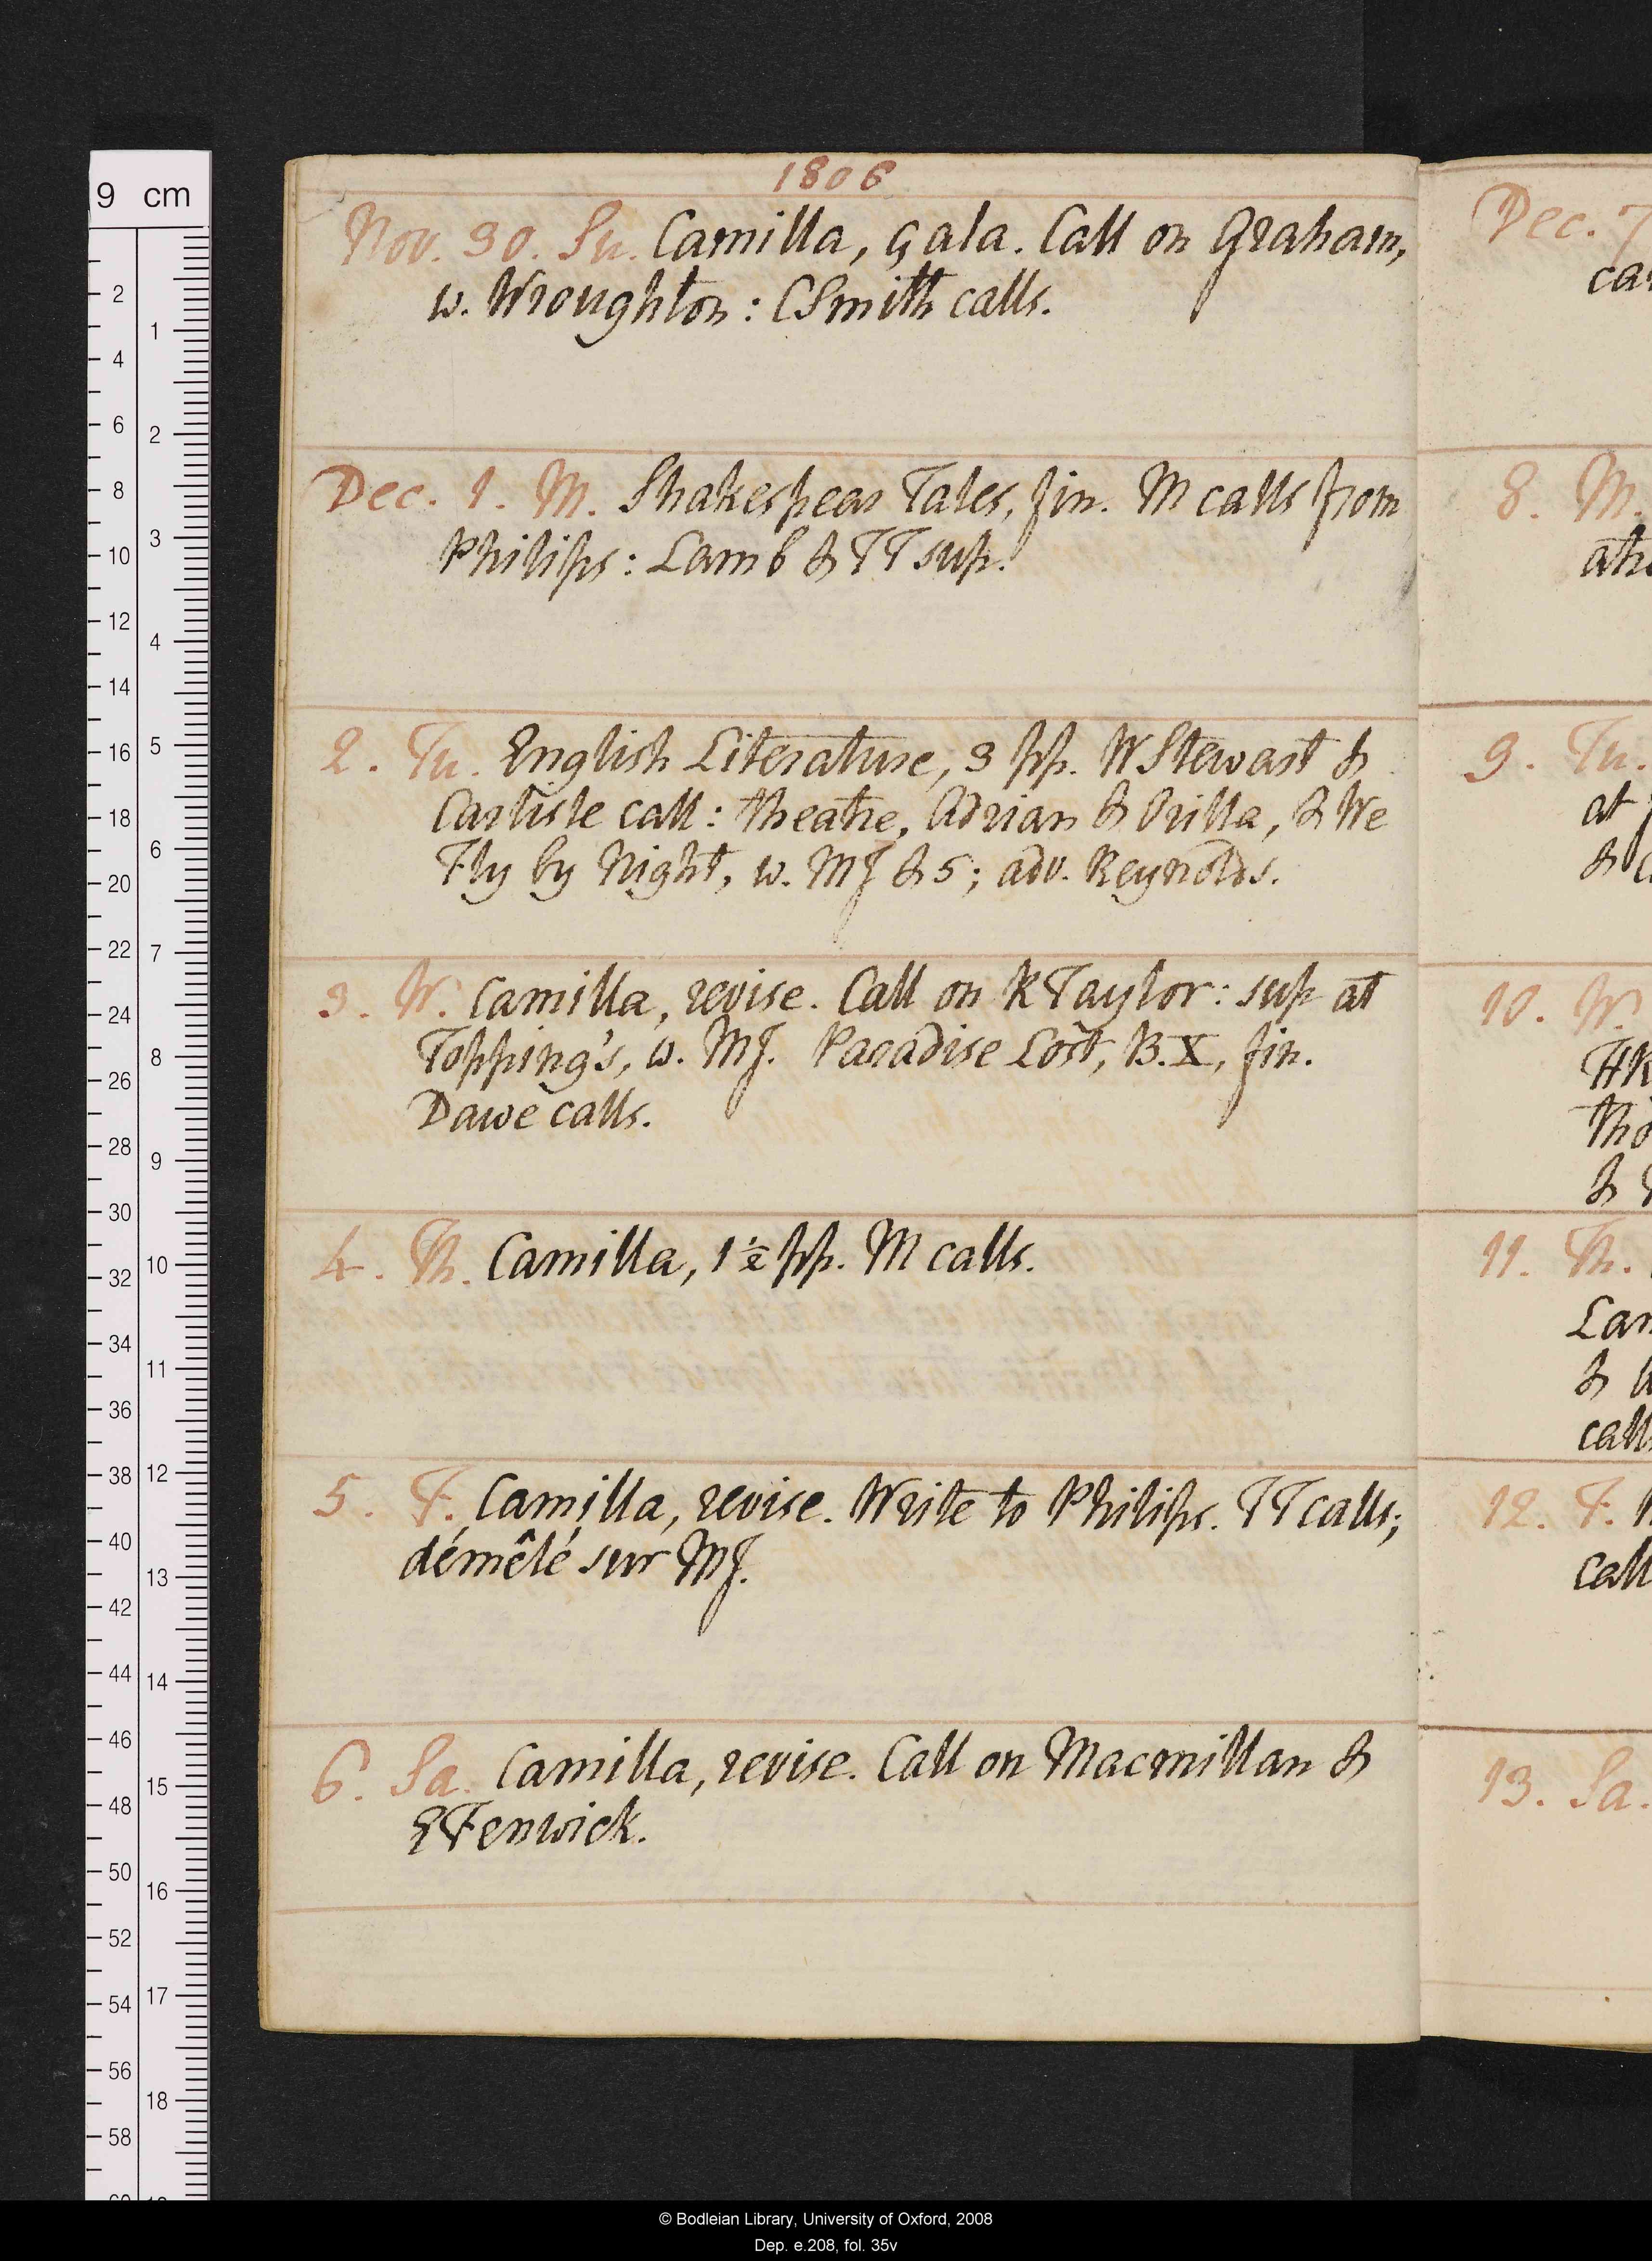 1806
Nov. 30. Su. Camilla, gala. Call on Graham,
w. Wroughton: CSmith calls.
Dec. 1. M. Shakespear Tales, fin. M calls from
Philips: Lamb & TT sup.
2. Tu. English Literature, 3 pp. W Stewart &
Carlisle call: theatre, Adrian & Orilla, & We
Fly by Night, w. MJ & 5; adv. Reynolds.
3. W. Camilla, revise. Call on RTaylor: sup at
Topping's, w. MJ. Paradise Lost, B. X, fin.
Dawe calls.
4. Th. Camilla, 1½ pp. M calls.
5. F. Camilla, revise. Write to Philips. TT calls;
démêlé sur MJ.
6. Sa. Camilla, revise. Call on Macmillan &
EFenwick.
Dec. 7
8. M.
9. Tu.
at
10. W.
11. Th.
&
12. F.
13. Sa.
9 cm
2
4
6
8
10
12
14
16
18
20
22
24
26
28
30
32
34
36
38
40
42
44
46
48
50
52
54
56
58
1
2
3
4
5
6
7
8
9
10
11
12
13
14
15
16
17
18
© Bodleian Library, University of Oxford, 2008
Dep. e.208, fol. 35v